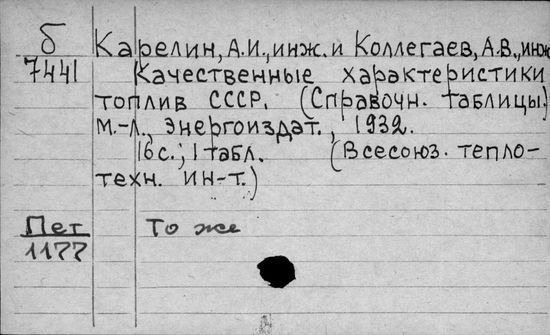 б
7441
Карелин, А.И., инж. и Коллегаев, А.В., инж.
Качественные характеристики
топлив СССР. (Справочн. таблицы.)
М.-Л., Энергоиздат., 1932.
16 с.; 1 табл. (Всесоюз. тепло-
техн. ин-т.)
Пет
1177
То же